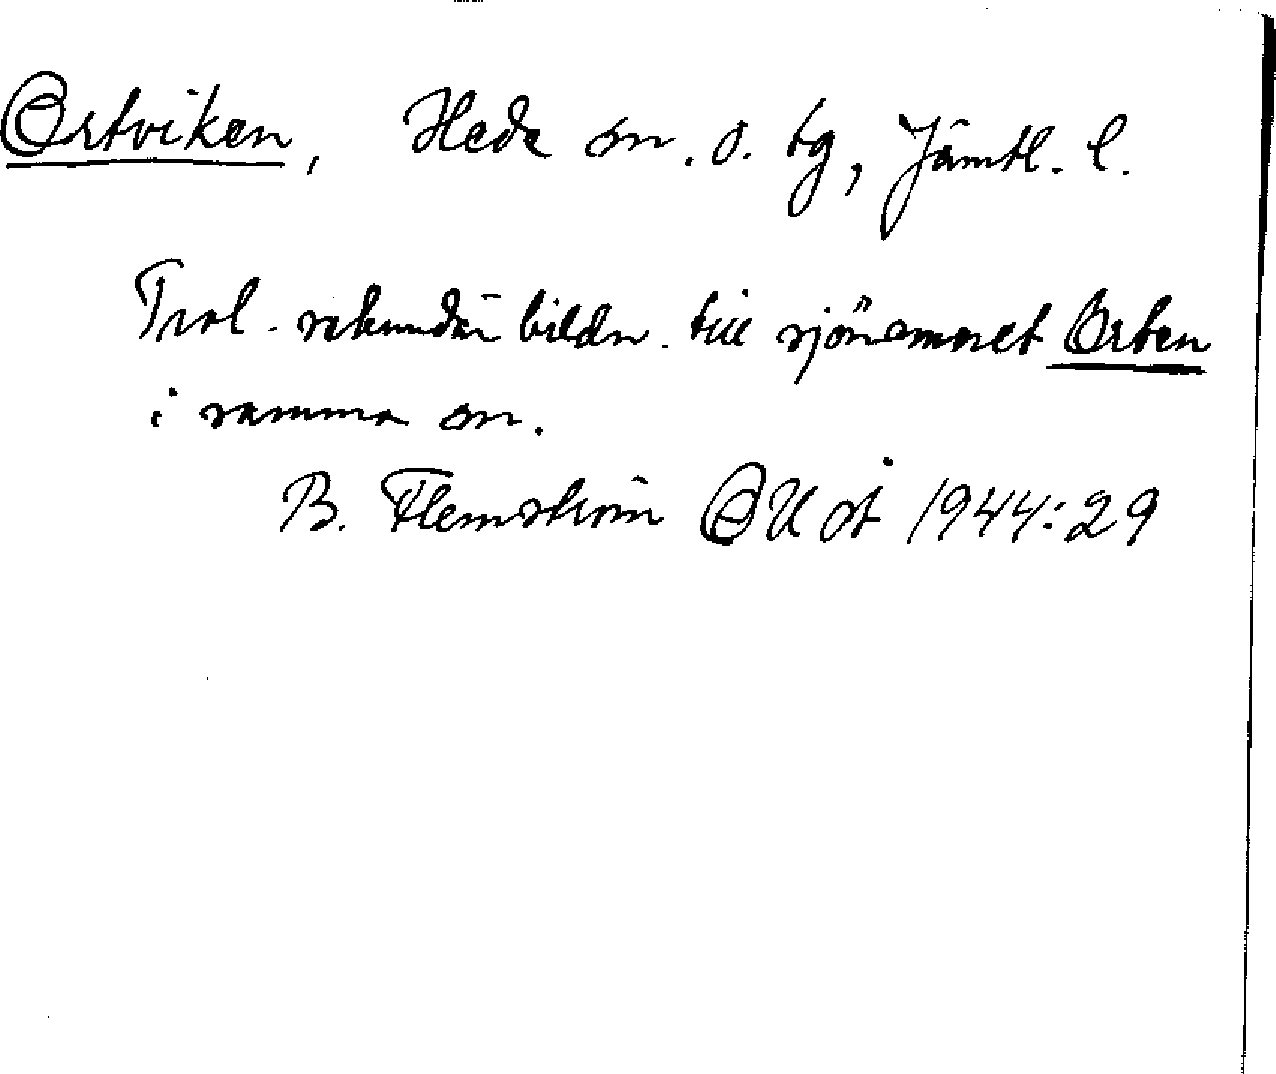 Örtviken, Hede sn. o. tg, Jämtl. l.
Trol. sekundär bildn. till sjönamnet Örten
i samma sn.
B. Flemström OUÅ 1944:29